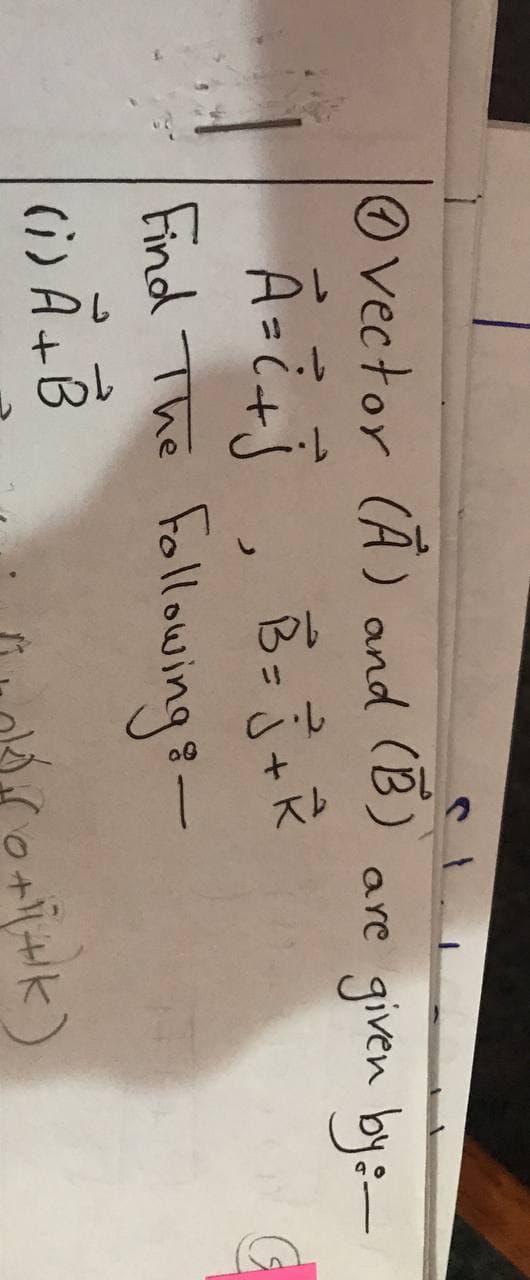 ① Vector (A⃗) and (B⃗) are given by:—
A⃗ = i⃗ + j⃗ , B⃗ = j⃗ + k⃗
Find The Following:—
(i) A⃗ + B⃗
(0+j+k)